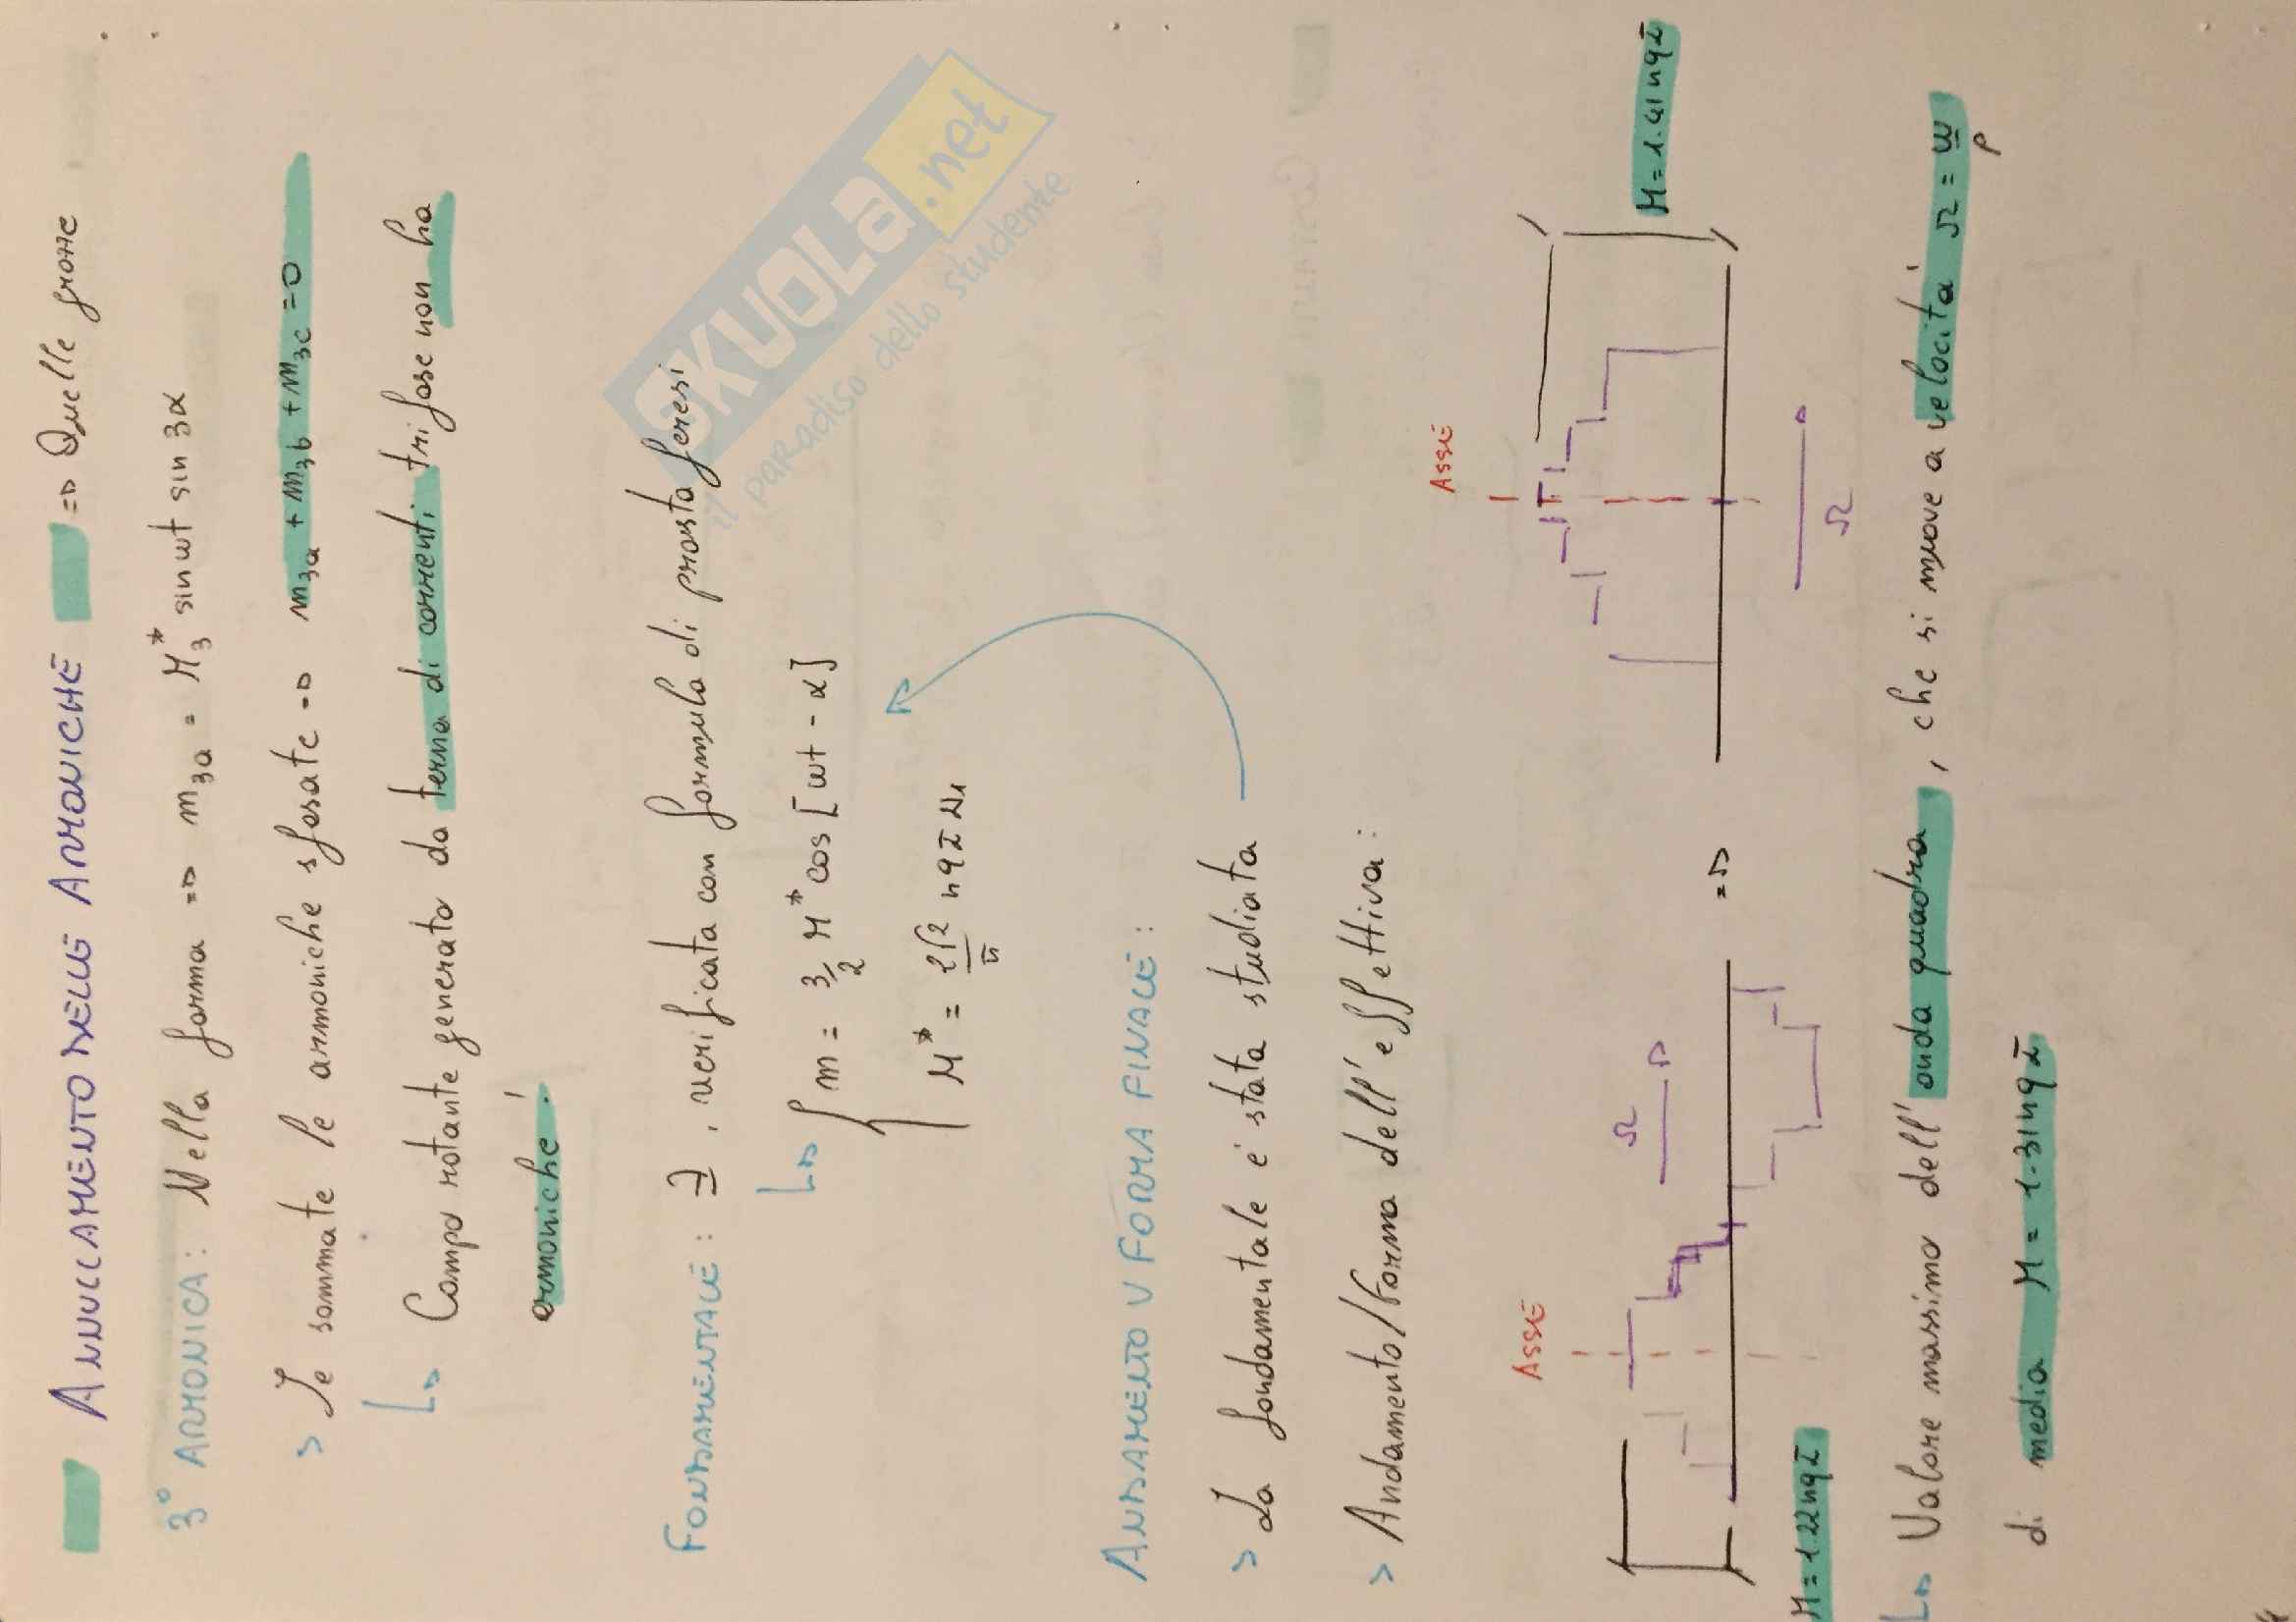 ANNULLAMENTO DELLE ARMONICHE => Quelle grosse
3° ARMONICA: Nella forma => m3a = M3* sinwt sin 3α
> Se sommate le armoniche sfasate => m3a + m3b + m3c = 0
Campo rotante generato da terna di correnti trifase non ha
armoniche!
FONDAMENTALE: ∃, verificata con formula di prostaferesi
m = 3/2 M* cos [wt - α]
M* = 2√2/π nqI
ANDAMENTO V FORMA FINALE:
> La fondamentale è stata studiata
> Andamento/Forma dell'effettiva:
ASSE
Ω
M = 1.22nqI
=>
ASSE
Ω
M = 1.41nqI
Valore massimo dell'onda quadra, che si muove a velocità Ω = w/p
di media M = 1.31nqI
SKUOLA.net
il paradiso dello studente